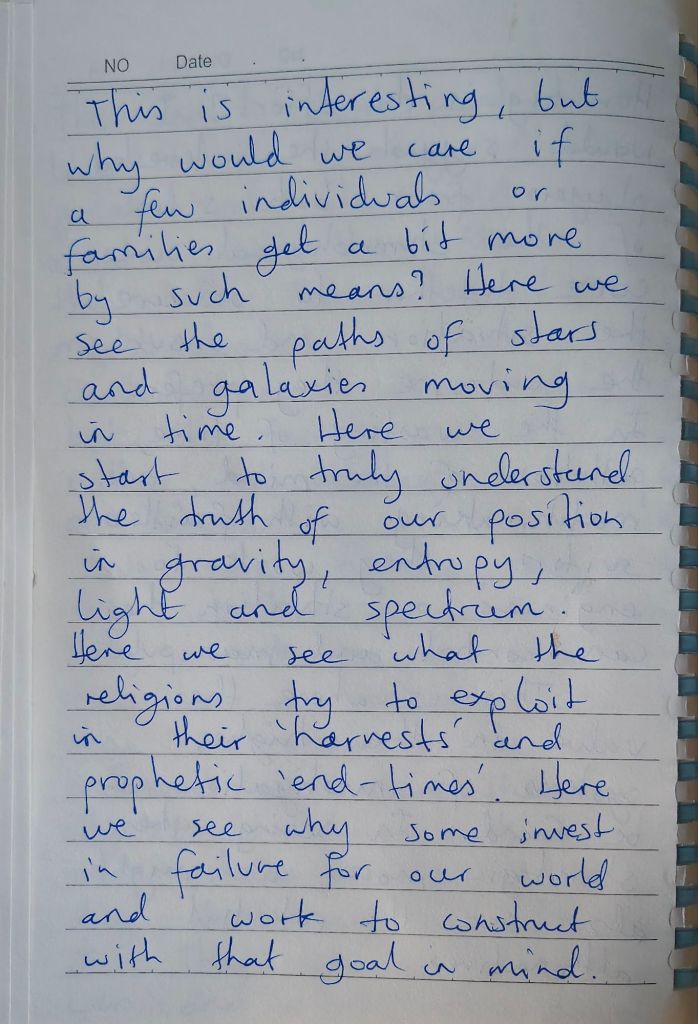 NO Date . .
This is interesting, but
why would we care if
a few individuals or
families get a bit more
by such means? Here we
see the paths of stars
and galaxies moving
in time. Here we
start to truly understand
the truth of our position
in gravity, entropy,
light and spectrum.
Here we see what the
religions try to exploit
in their 'harvests' and
prophetic 'end-times'. Here
we see why some invest
in failure for our world
and work to construct
with that goal in mind.